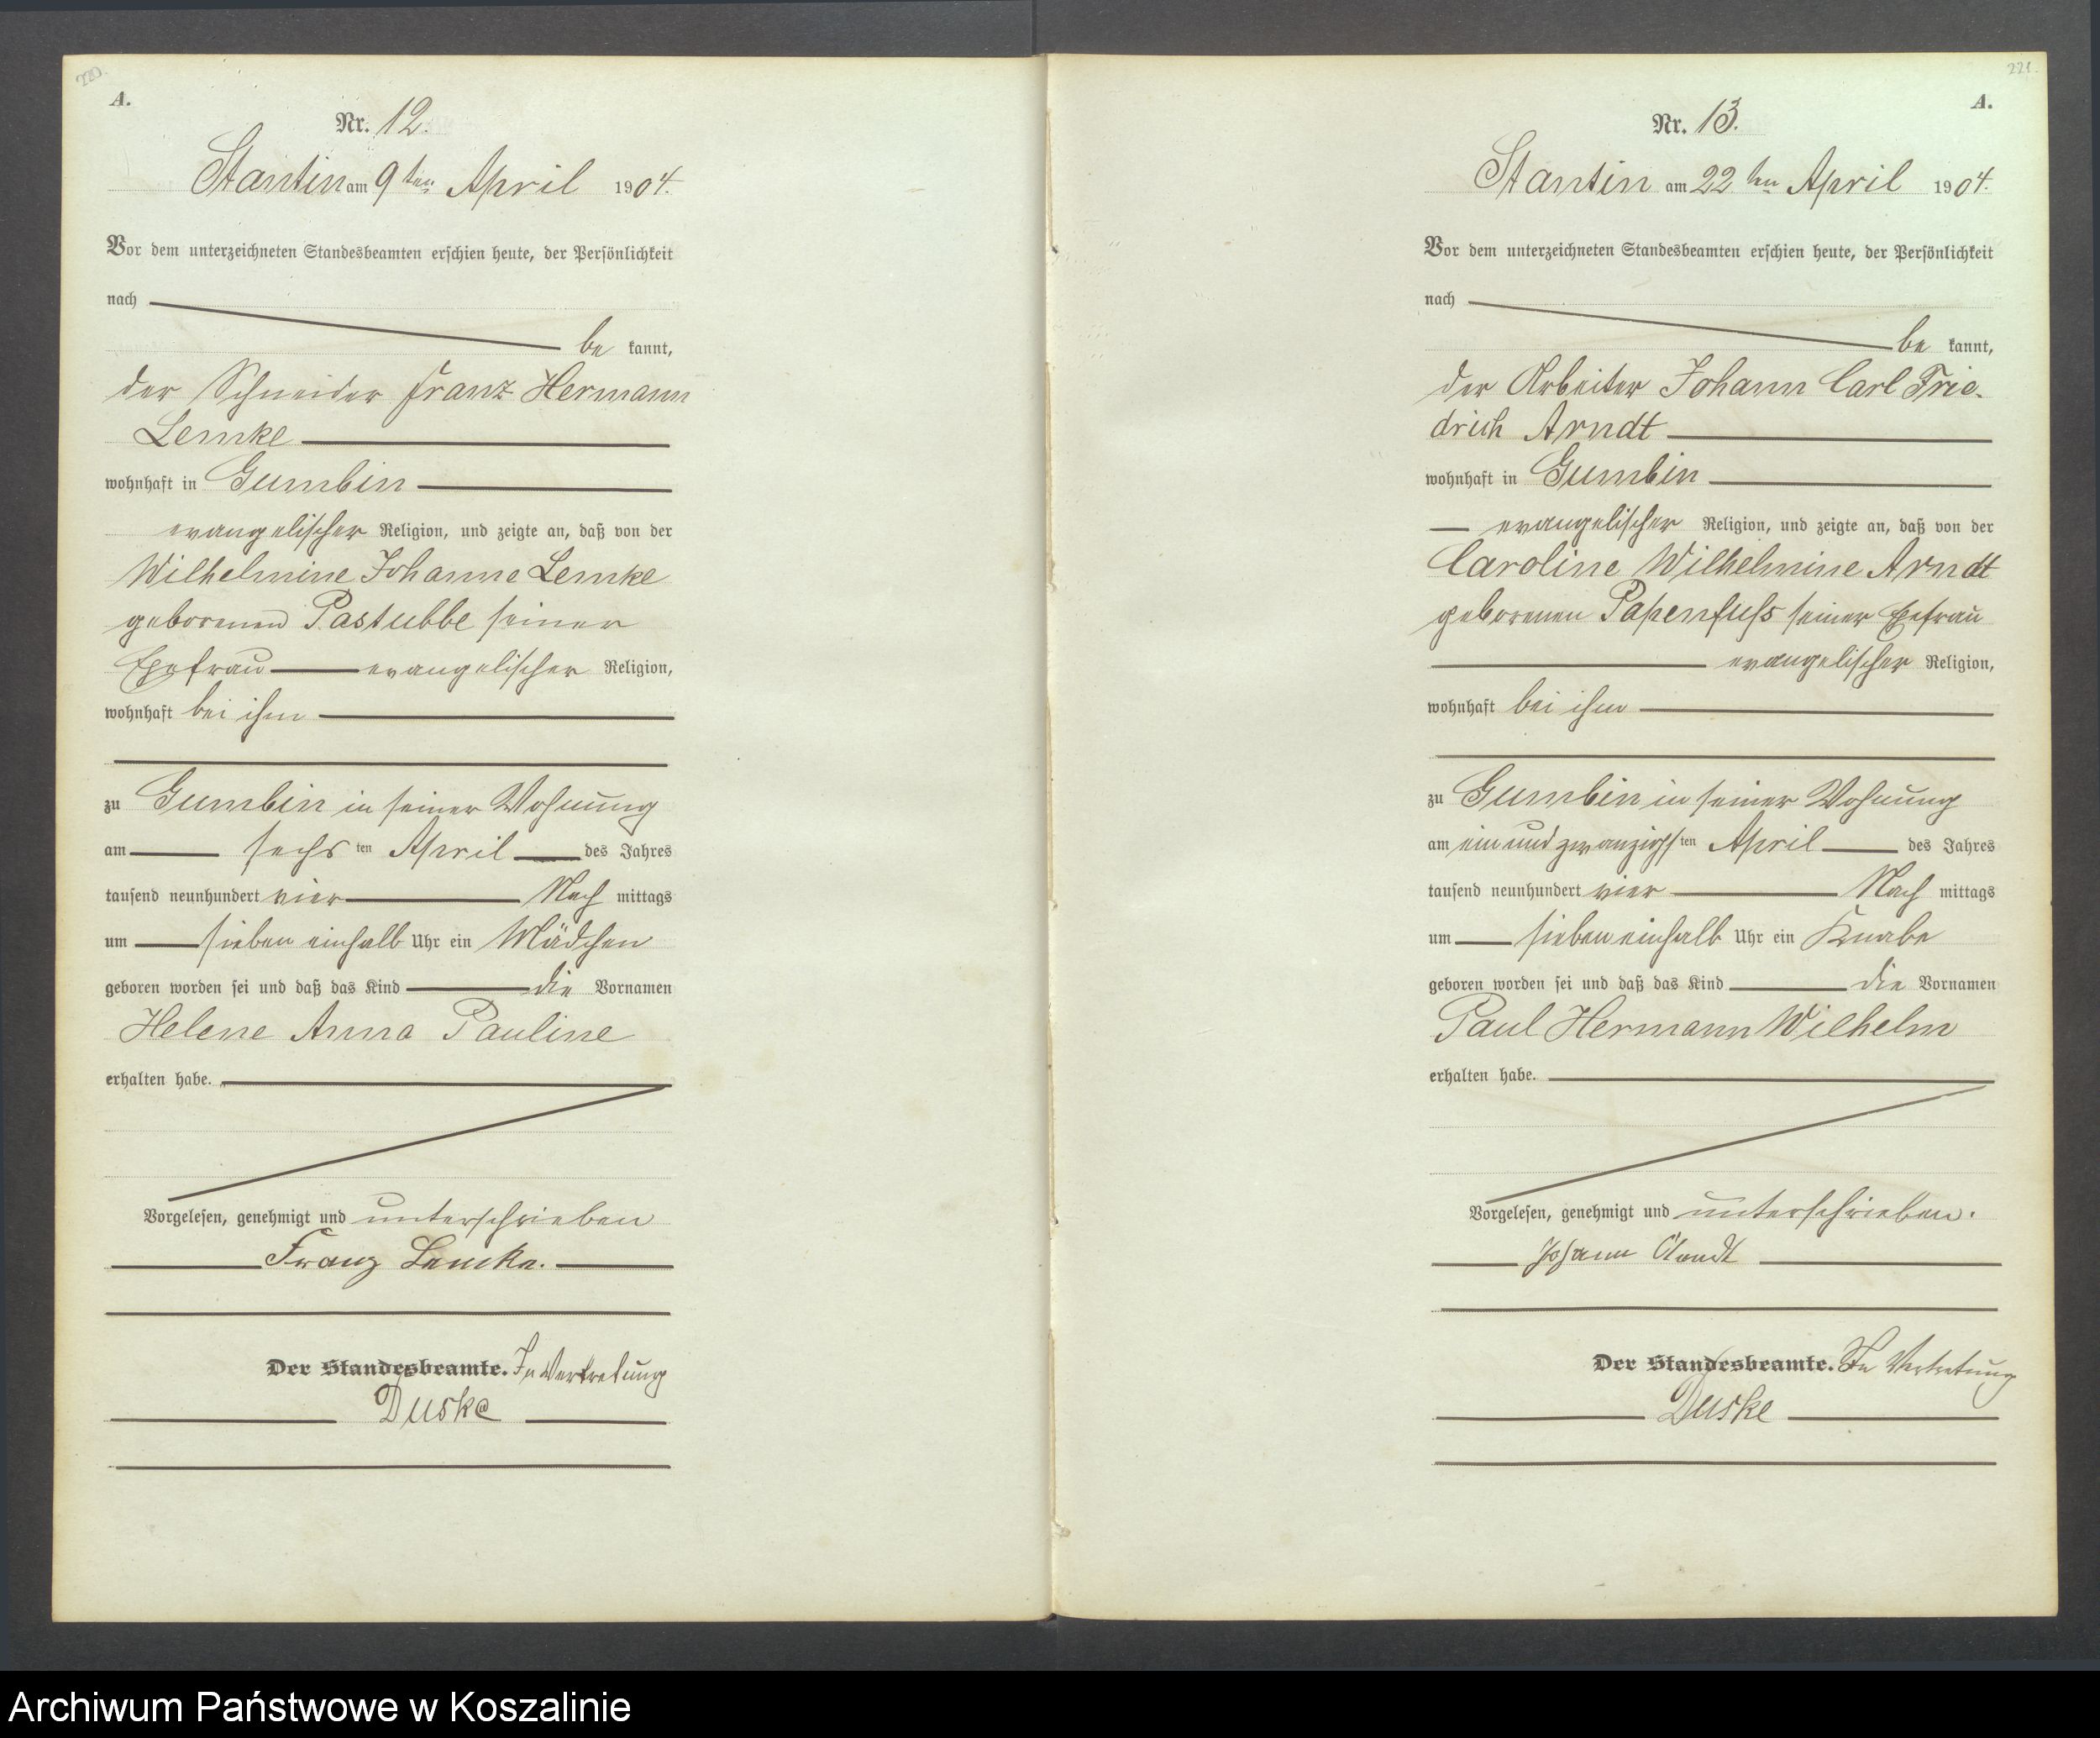 220.
A.
Nr. 12.
Stantin am 9ten April 1904.
Vor dem unterzeichneten Standesbeamten erschien heute, der Persönlichkeit
nach
be kannt,
der Schneider Franz Hermann
Lemke
wohnhaft in Gumbin
evangelischer Religion, und zeigte an, daß von der
Wilhelmine Johanne Lemke
geborenen Pastubbe seiner
Ehefrau evangelischer Religion,
wohnhaft bei ihm
zu Gumbin in seiner Wohnung
am sechs ten April des Jahres
tausend neunhundert vier Nach mittags
um sieben einhalb Uhr ein Mädchen
geboren worden sei und daß das Kind die Vornamen
Helene Anna Pauline
erhalten habe.
Vorgelesen, genehmigt und unterschrieben
Franz Lemke.
Der Standesbeamte. In Vertretung
Duske
221.
A.
Nr. 13.
Stantin am 22ten April 1904.
Vor dem unterzeichneten Standesbeamten erschien heute, der Persönlichkeit
nach
be kannt,
der Arbeiter Johann Carl Frie-
drich Arndt
wohnhaft in Gumbin
evangelischer Religion, und zeigte an, daß von der
Caroline Wilhelmine Arndt
geborenen Papenfuss seiner Ehefrau
evangelischer Religion,
wohnhaft bei ihm
zu Gumbin in seiner Wohnung
am ein und zwanzigsten April des Jahres
tausend neunhundert vier Nach mittags
um sieben einhalb Uhr ein Knabe
geboren worden sei und daß das Kind die Vornamen
Paul Hermann Wilhelm
erhalten habe.
Vorgelesen, genehmigt und unterschrieben.
Johann Arndt
Der Standesbeamte. In Vertretung
Duske
Archiwum Państwowe w Koszalinie